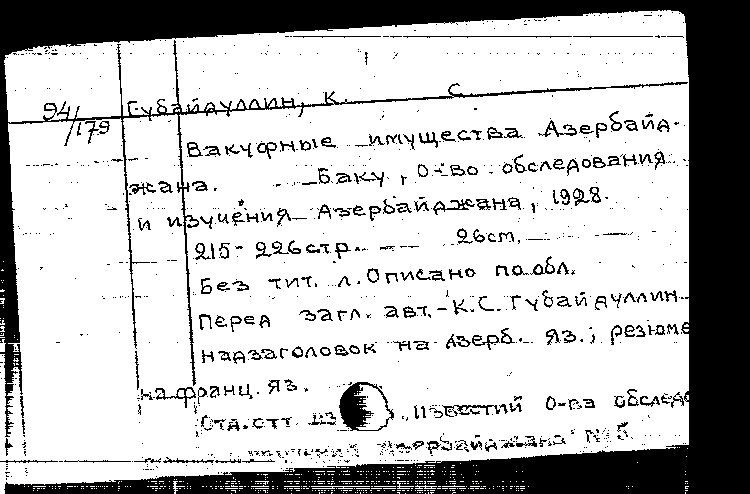 94/179 Губайдуллин, К. С.
Вакуфные имущества Азербайд-
жана. — Баку, О-во обследования
и изучения Азербайджана, 1928.
215-226 стр. — 26 ст.
Без тит. л. Описано по обл.
Перед загл. авт. - К.С. Губайдуллин
надзаголовок на Азерб. яз.; резюме
на франц. яз.
Отд. отт. из Известий О-ва обслед
изучения Азербайджана" № 5.